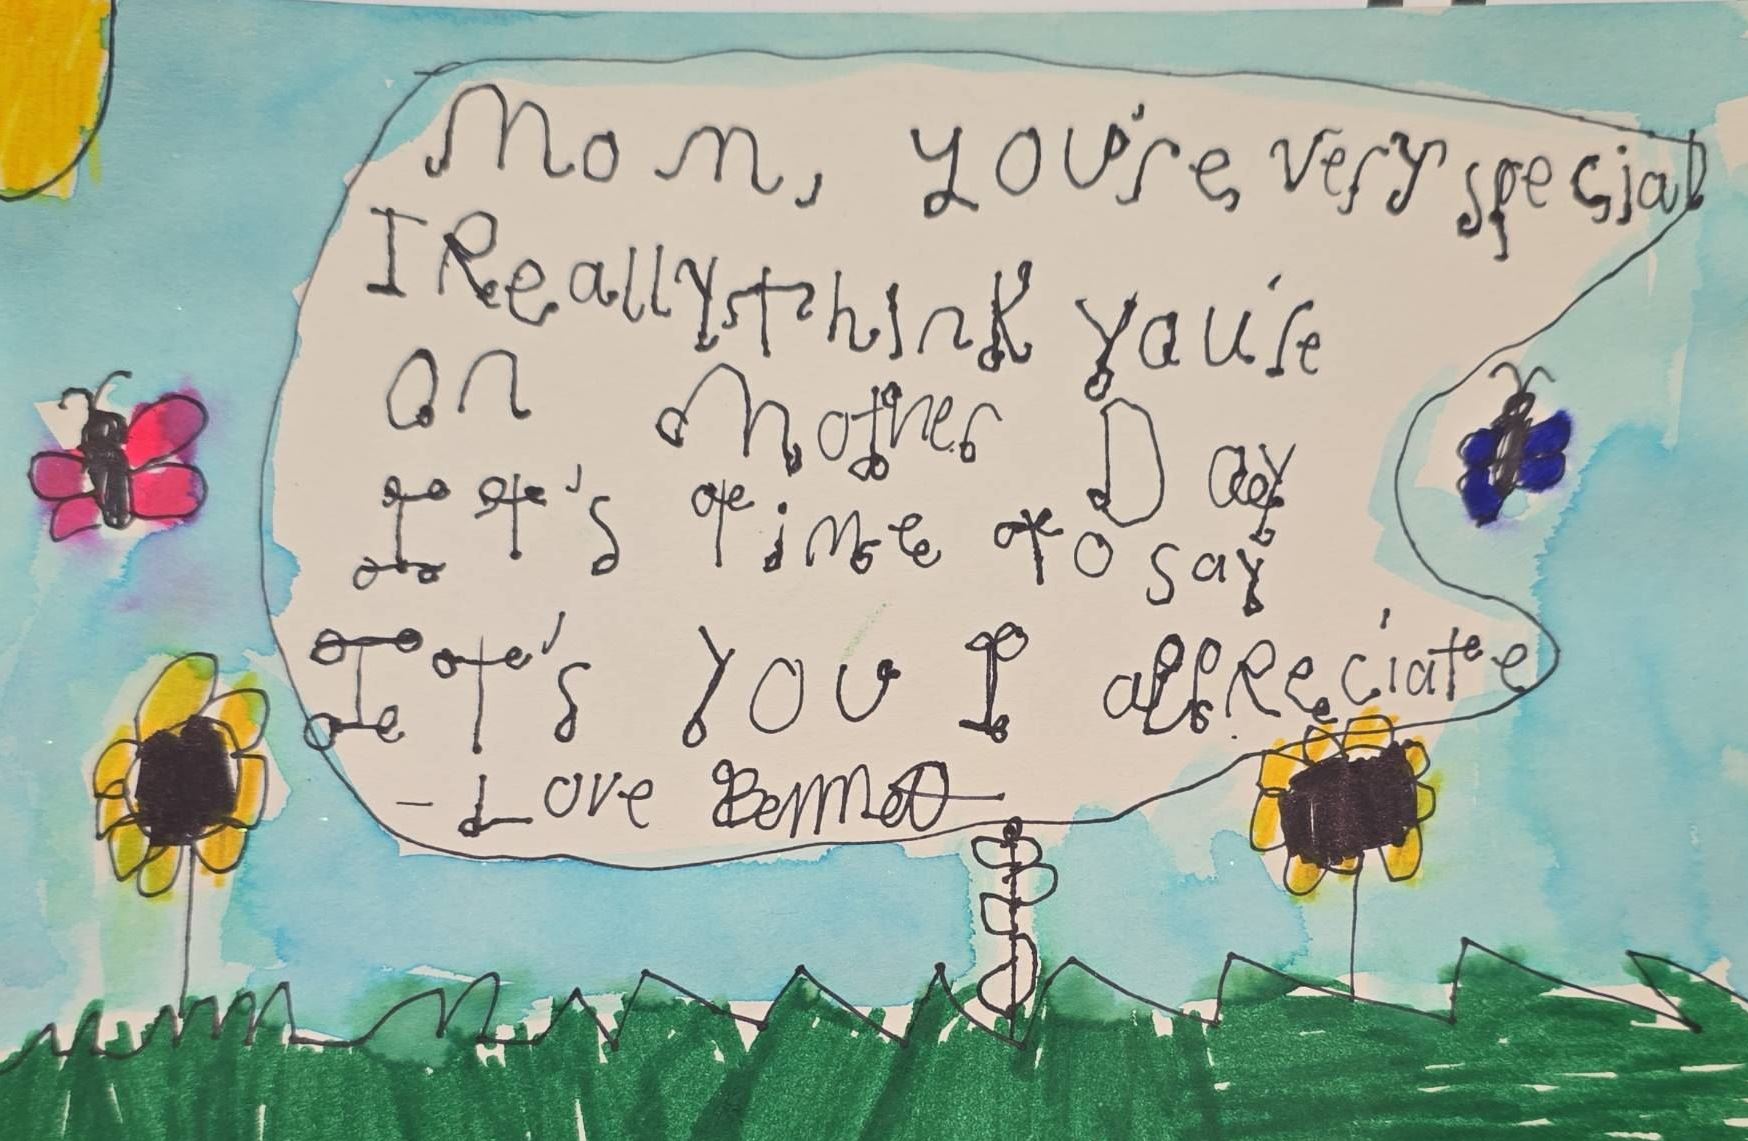 Mom, you're very special
I Really think you're
on Mother Day
It's time to say
It's you I appReciate
- Love Bennett